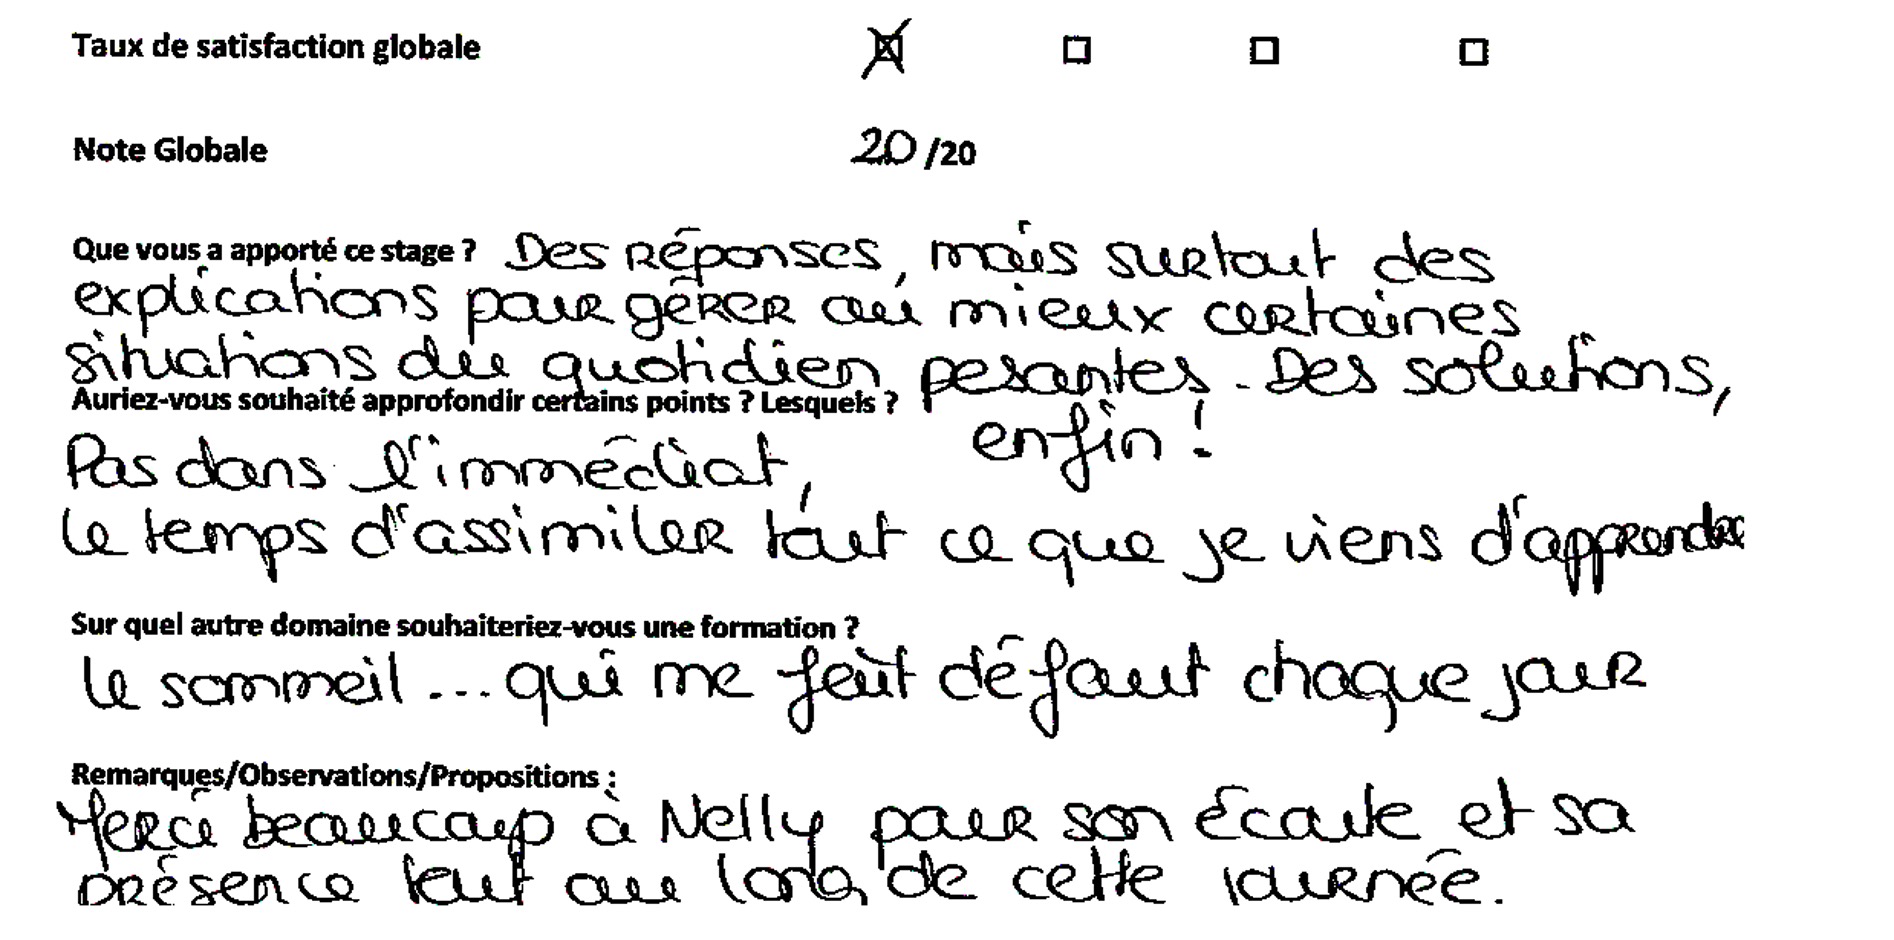 Taux de satisfaction globale
Note Globale 20 /20
Que vous a apporté ce stage ? Des réponses, mais surtout des
explications pour gérer au mieux certaines
situations du quotidien pesantes. Des solutions,
enfin !
Auriez-vous souhaité approfondir certains points ? Lesquels ?
Pas dans l'immédiat,
le temps d'assimiler tout ce que je viens d'apprendre
Sur quel autre domaine souhaiteriez-vous une formation ?
le sommeil ... qui me fait défaut chaque jour
Remarques/Observations/Propositions :
Merci beaucoup à Nelly pour son écoute et sa
présence tout au long de cette journée.